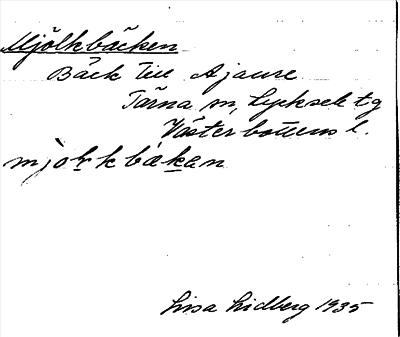 Mjölkbäcken
Bäck till Ajaure
Tärna sn, Lycksele tg
Västerbottens l.
mjolkbäkan
Lisa Lidberg 1935